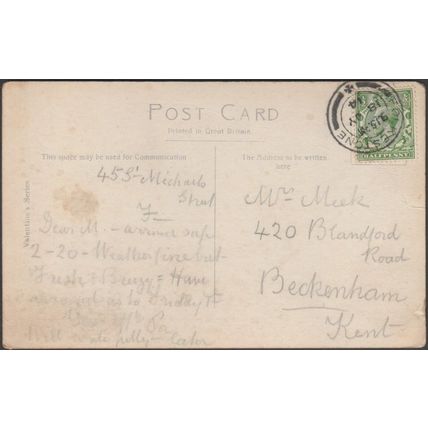 POST CARD
Printed in Great Britain.
This space may be used for Communication
The Address to be written
here
Valentine's Series
45 St Michaels
Street
F—
Dear M. – arrived safe
2-20 – Weather fine but
Fresh & Breezy – Have
as to
Pa
Will write fully – Later
Mrs Meek
420 Blandford
Road
Beckenham
Kent
HALFPENNY